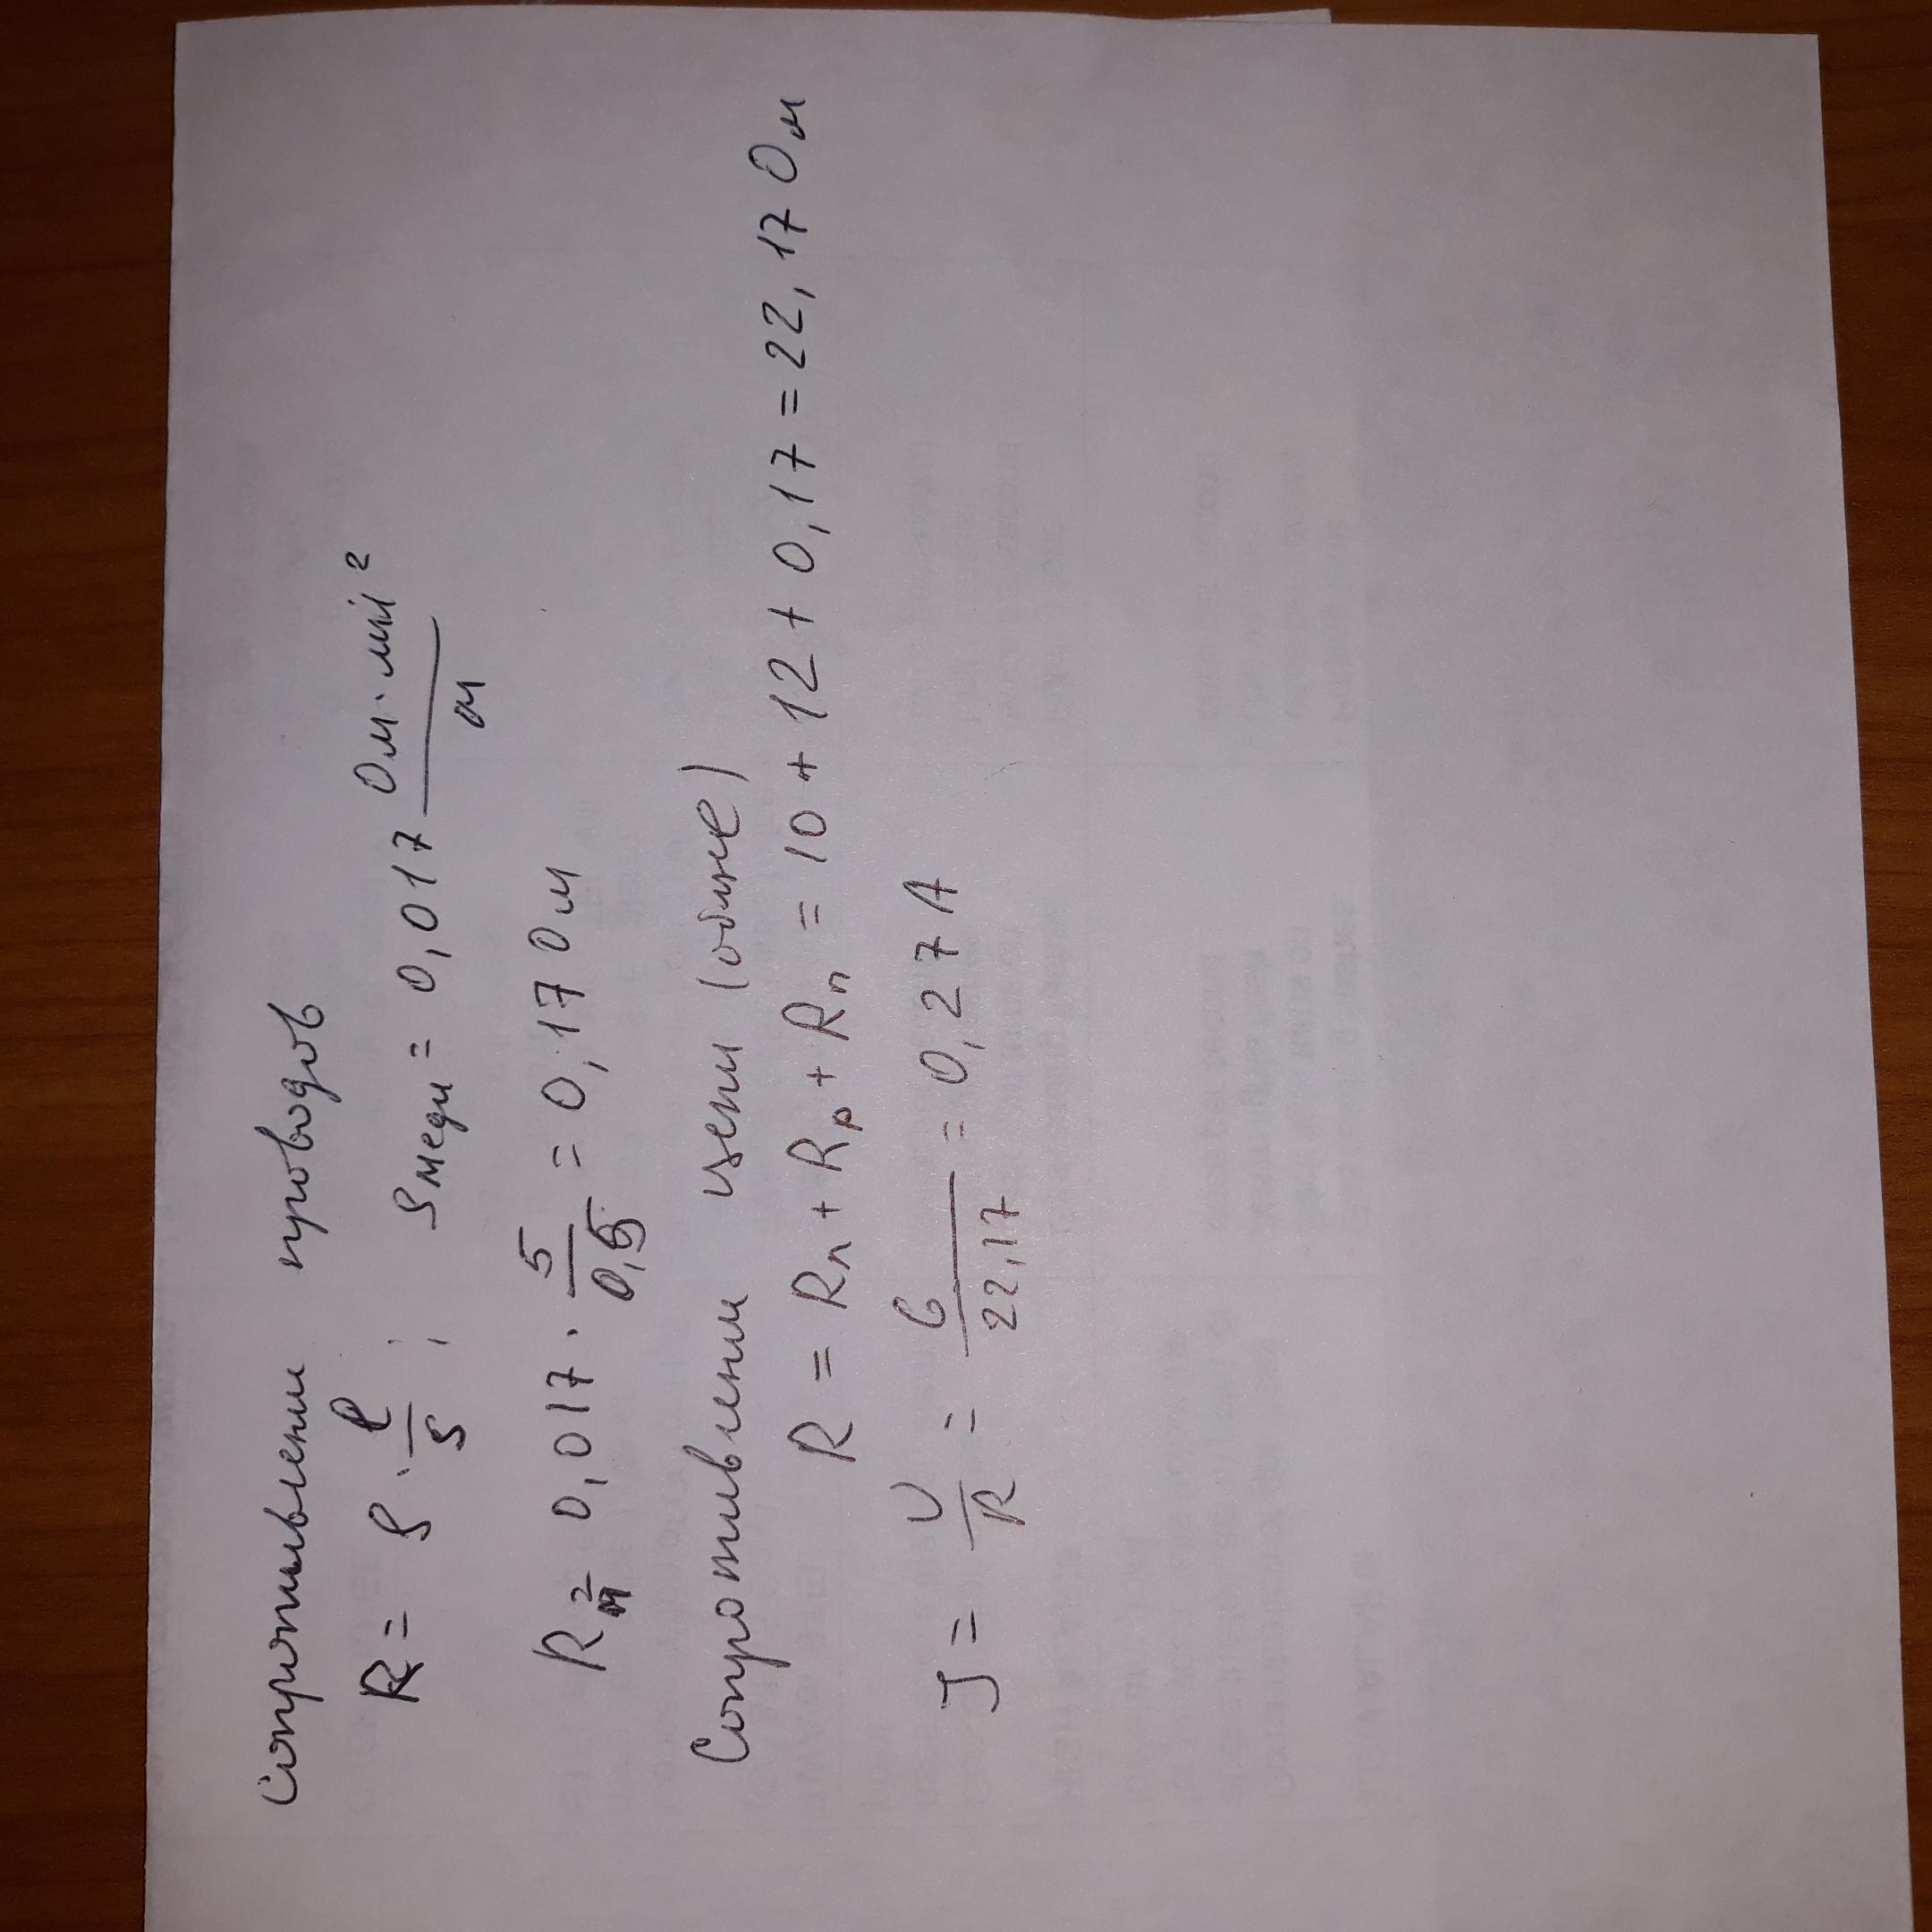 Сопротивлени проводов
R = ρ · l/S ; ρмеди = 0,017 Ом·мм²/м
R = 0,017 · 5/0,5 = 0,17 Ом
Сопротивлени цепи (общее)
R = Rл + Rр + Rп = 10 + 12 + 0,17 = 22,17 Ом
J = U/R = 6/22,17 = 0,27 А